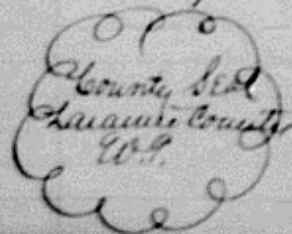 County Seal
Laramie County
W.T.